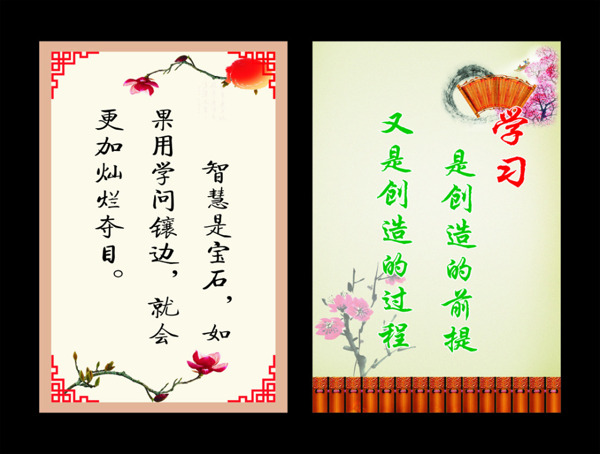 智慧是宝石，如
果用学问镶边，就会
更加灿烂夺目。
学习
是创造的前提
又是创造的过程